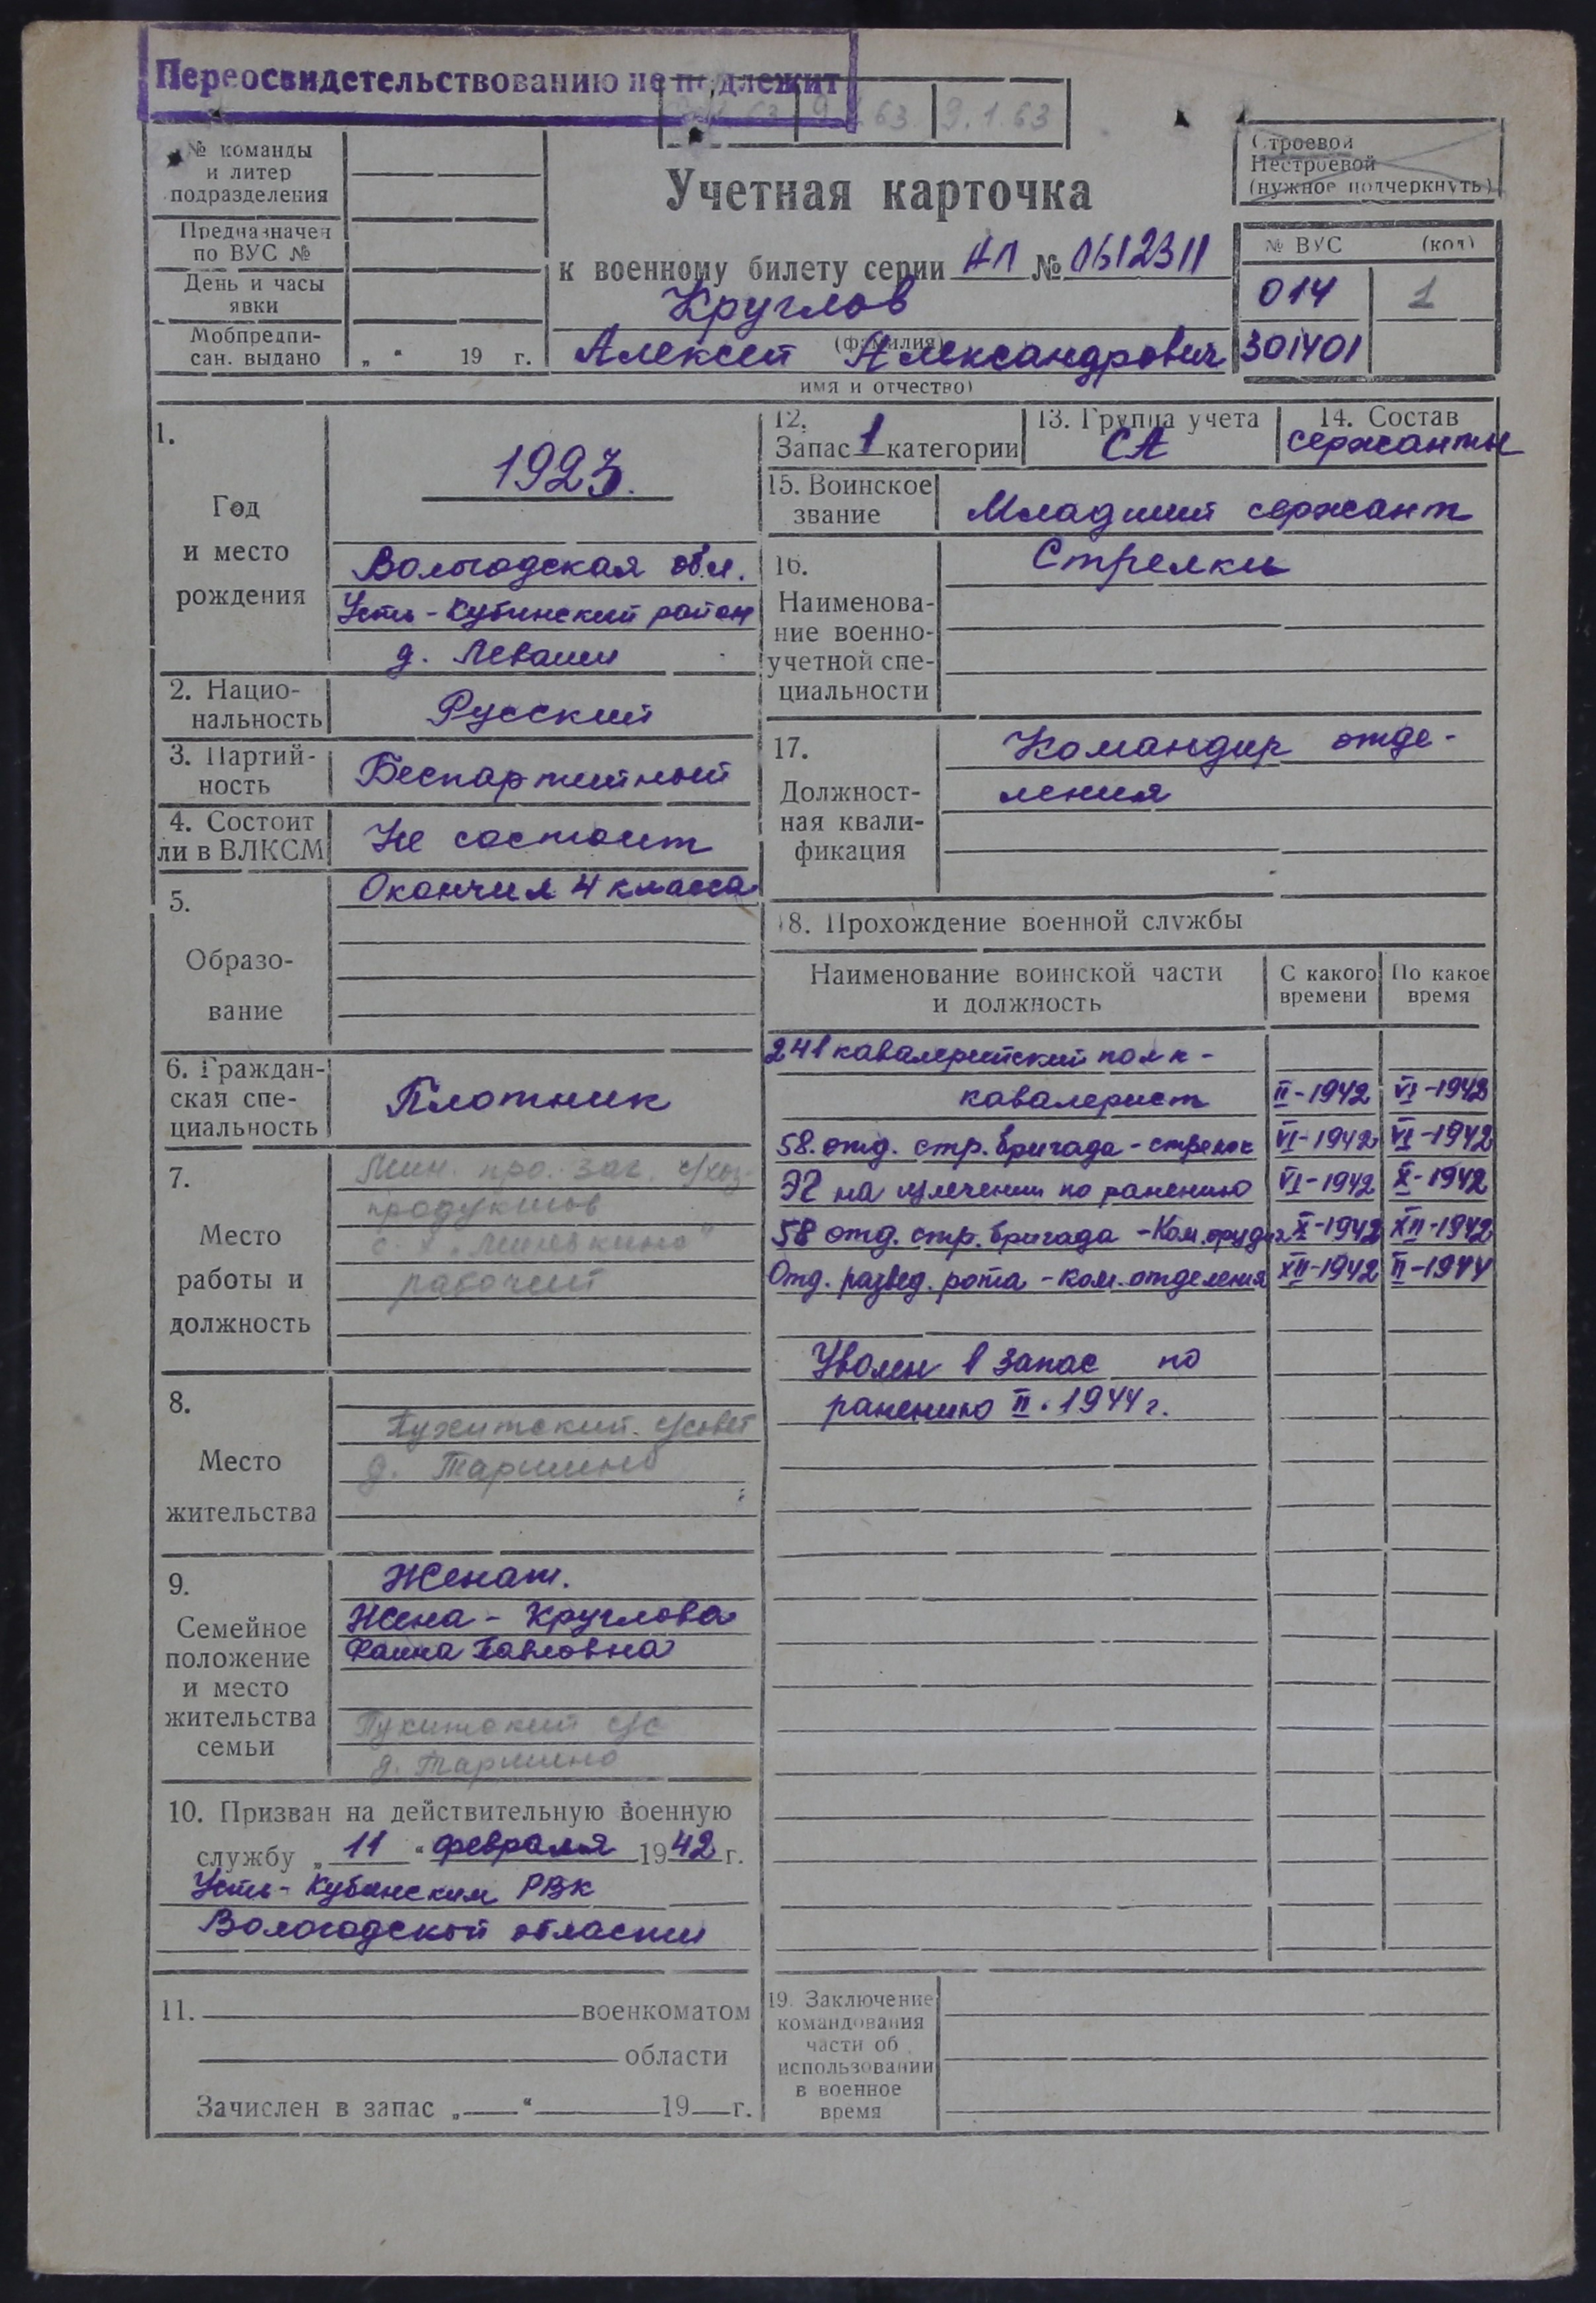 Переосвидетельствованию не подлежит
9.1.63
№ команды
и литер
подразделения
Предназначен
по ВУС №
День и часы
явки
Мобпредпи-
сан. выдано „ “ 19 г.
Учетная карточка
к военному билету серии АП № 0612311
Круглов
(фамилия)
Алексей Александрович
имя и отчество)
Строевой
Нестроевой
(нужное подчеркнуть)
№ ВУС (код)
014 1
301401
1.
Год
и место
рождения
1923.
Вологодская обл.
Усть-Кубинский район
д. Леваши
2. Нацио-
нальность
Русский
3. Партий-
ность
Беспартийный
4. Состоит
ли в ВЛКСМ
Не состоит
5.
Образо-
вание
Окончил 4 класса
6. Граждан-
ская спе-
циальность
Плотник
7.
Место
работы и
должность
Мин. про. заг. с/хоз-
продуктов
рабочий
8.
Место
жительства
Пухитский с/совет
д. Таршино
9.
Семейное
положение
и место
жительства
семьи
Женат.
Жена - Круглова
Фаина Павловна
Пухитский с/с
д. Таршино
10. Призван на действительную военную
службу „ 11 “ февраля 1942 г.
Усть-Кубинским РВК
Вологодской области
11. военкоматом
области
Зачислен в запас „ “ 19 г.
12.
Запас 1 категории
13. Группа учета
СА
14. Состав
сержанты
15. Воинское
звание
Младший сержант
16.
Наименова-
ние военно-
учетной спе-
циальности
Стрелки
17.
Должност-
ная квали-
фикация
Командир отде-
ления
18. Прохождение военной службы
Наименование воинской части
и должность
С какого
времени
По какое
время
241 кавалерийский полк -
кавалерист II-1942 VI-1942
58. отд. стр. бригада - стрелок VI-1942 VI-1942
ЭГ на излечении по ранению VI-1942 X-1942
58 отд. стр. бригада - Ком. орудия X-1942 XII-1942
Отд. развед. рота - ком. отделения XII-1942 II-1944
Уволен в запас по
ранению II.1944 г.
19. Заключение
командования
части об
использовании
в военное
время